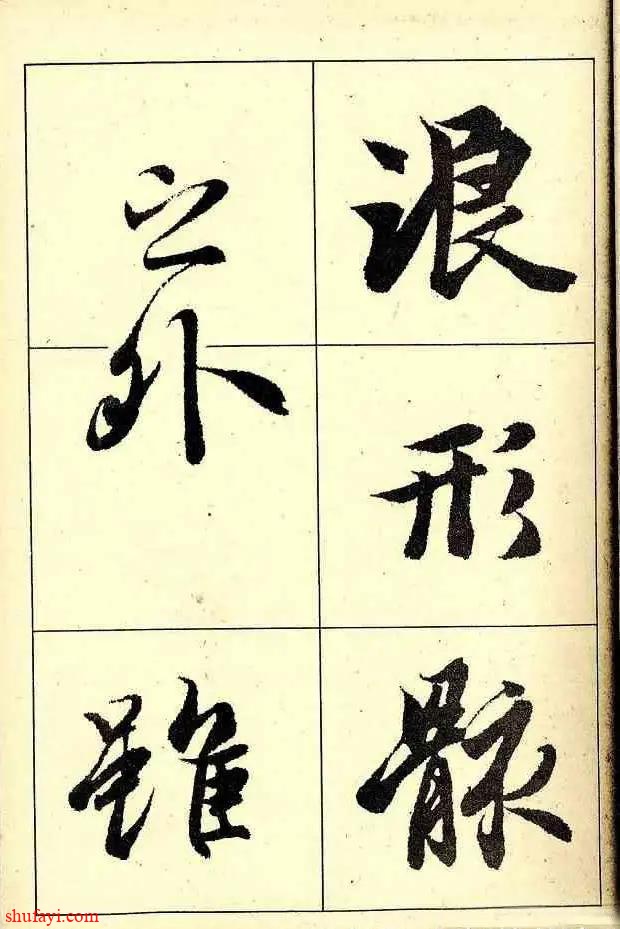 浪形骸
之外雖
shufayi.com